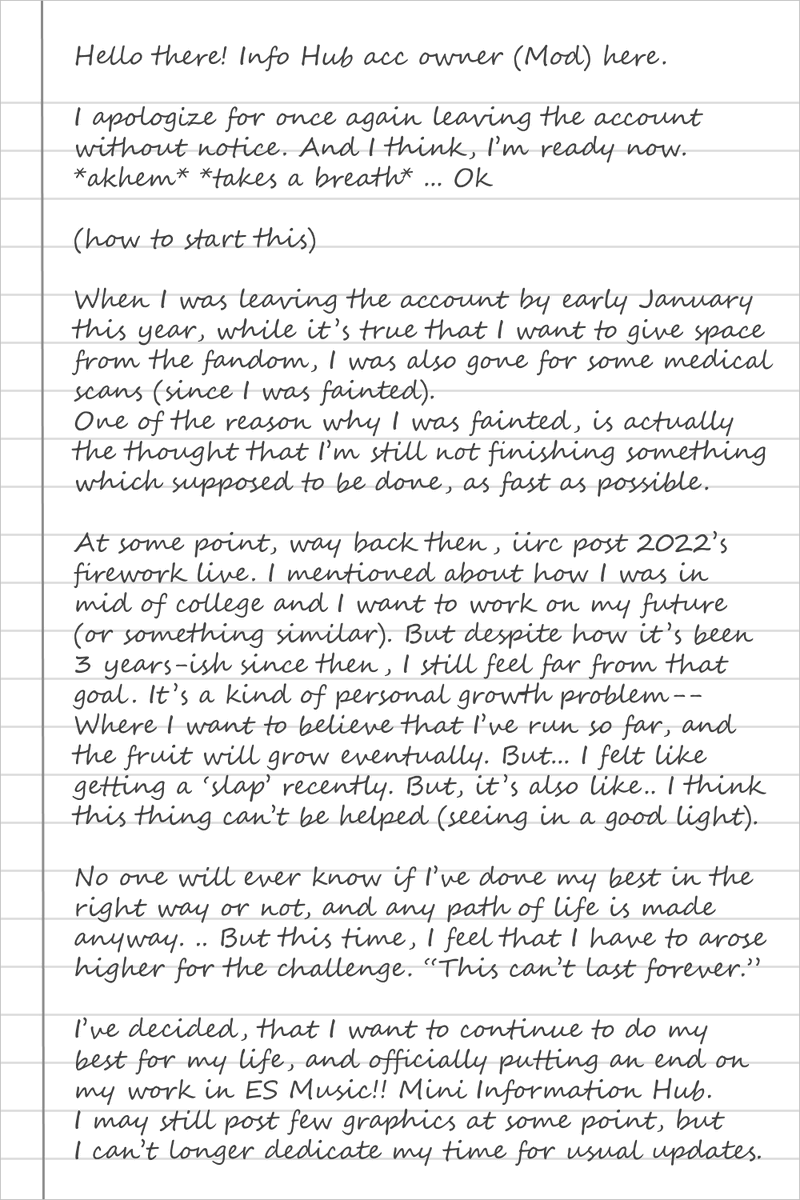 Hello there! Info Hub acc owner (Mod) here.
I apologize for once again leaving the account
without notice. And I think, I'm ready now.
*akhem* *takes a breath* ... Ok
(how to start this)
When I was leaving the account by early January
this year, while it's true that I want to give space
from the fandom, I was also gone for some medical
scans (since I was fainted).
One of the reason why I was fainted, is actually
the thought that I'm still not finishing something
which supposed to be done, as fast as possible.
At some point, way back then, iirc post 2022's
firework live. I mentioned about how I was in
mid of college and I want to work on my future
(or something similar). But despite how it's been
3 years-ish since then, I still feel far from that
goal. It's a kind of personal growth problem--
Where I want to believe that I've run so far, and
the fruit will grow eventually. But... I felt like
getting a 'slap' recently. But, it's also like.. I think
this thing can't be helped (seeing in a good light).
No one will ever know if I've done my best in the
right way or not, and any path of life is made
anyway. .. But this time, I feel that I have to arose
higher for the challenge. "This can't last forever."
I've decided, that I want to continue to do my
best for my life, and officially putting an end on
my work in ES Music!! Mini Information Hub.
I may still post few graphics at some point, but
I can't longer dedicate my time for usual updates.